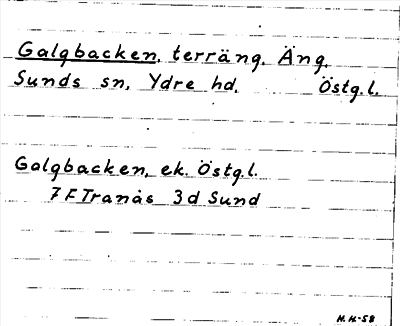 Galgbacken, terräng. Äng.
Sunds sn, Ydre hd. Östg.l.
Galgbacken, ek. Östg.l.
7 F Tranås 3 d Sund
H.H.-58